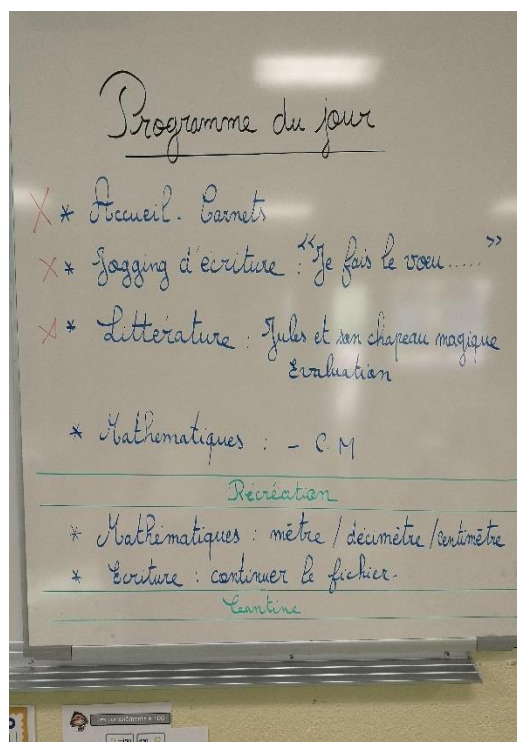 Programme du jour
X * Accueil - Carnets
X * Jogging d'écriture : "Je fais le vœu....."
X * Littérature : Jules et son chapeau magique
Evaluation
* Mathématiques : - C M
Récréation
* Mathématiques : mètre / décimètre / centimètre
* Ecriture : continuer le fichier.
Cantine
Les compléments à 100